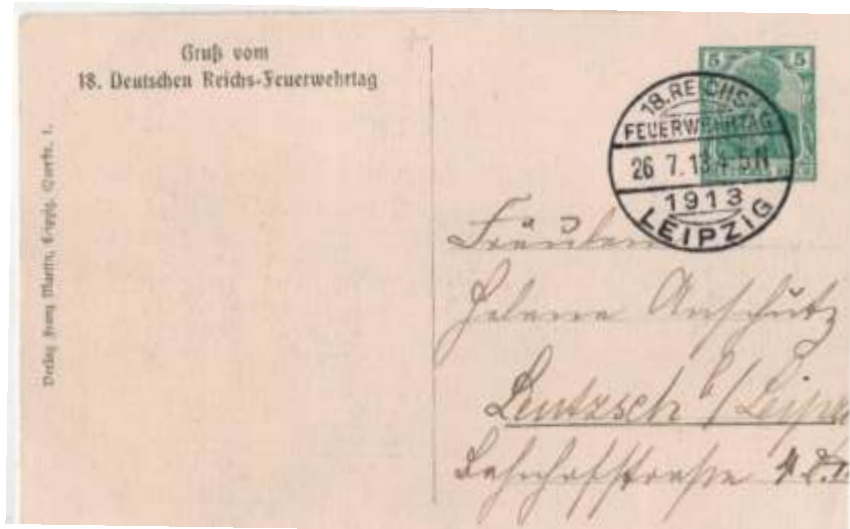 Gruß vom
18. Deutschen Reichs-Feuerwehrtag
Verlag Franz Martin, Leipzig, Querstr. 1.
5 5
18. REICHS-
FEUERWEHRTAG
26 7. 13. 4-5 N
1913
LEIPZIG
Fräulein
Helene Anschütz
Leutzsch b/Leipz
Bahnhofstraße